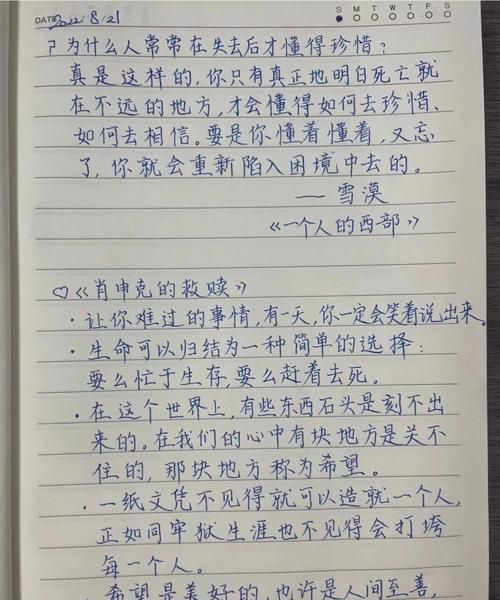 DATE 2022/8/21
S M T W T F S
? 为什么人常常在失去后才懂得珍惜?
真是这样的,你只有真正地明白死亡就
在不远的地方,才会懂得如何去珍惜、
如何去相信。要是你懂着懂着,又忘
了,你就会重新陷入困境中去的。
——雪漠
《一个人的西部》
♡《肖申克的救赎》
·让你难过的事情,有一天,你一定会笑着说出来。
·生命可以归结为一种简单的选择:
要么忙于生存,要么赶着去死。
·在这个世界上,有些东西石头是刻不出
来的。在我们的心中有块地方是关不
住的,那块地方称为希望。
·一纸文凭不见得就可以造就一个人,
正如同牢狱生涯也不见得会打垮
每一个人。
·希望是美好的,也许是人间至善,